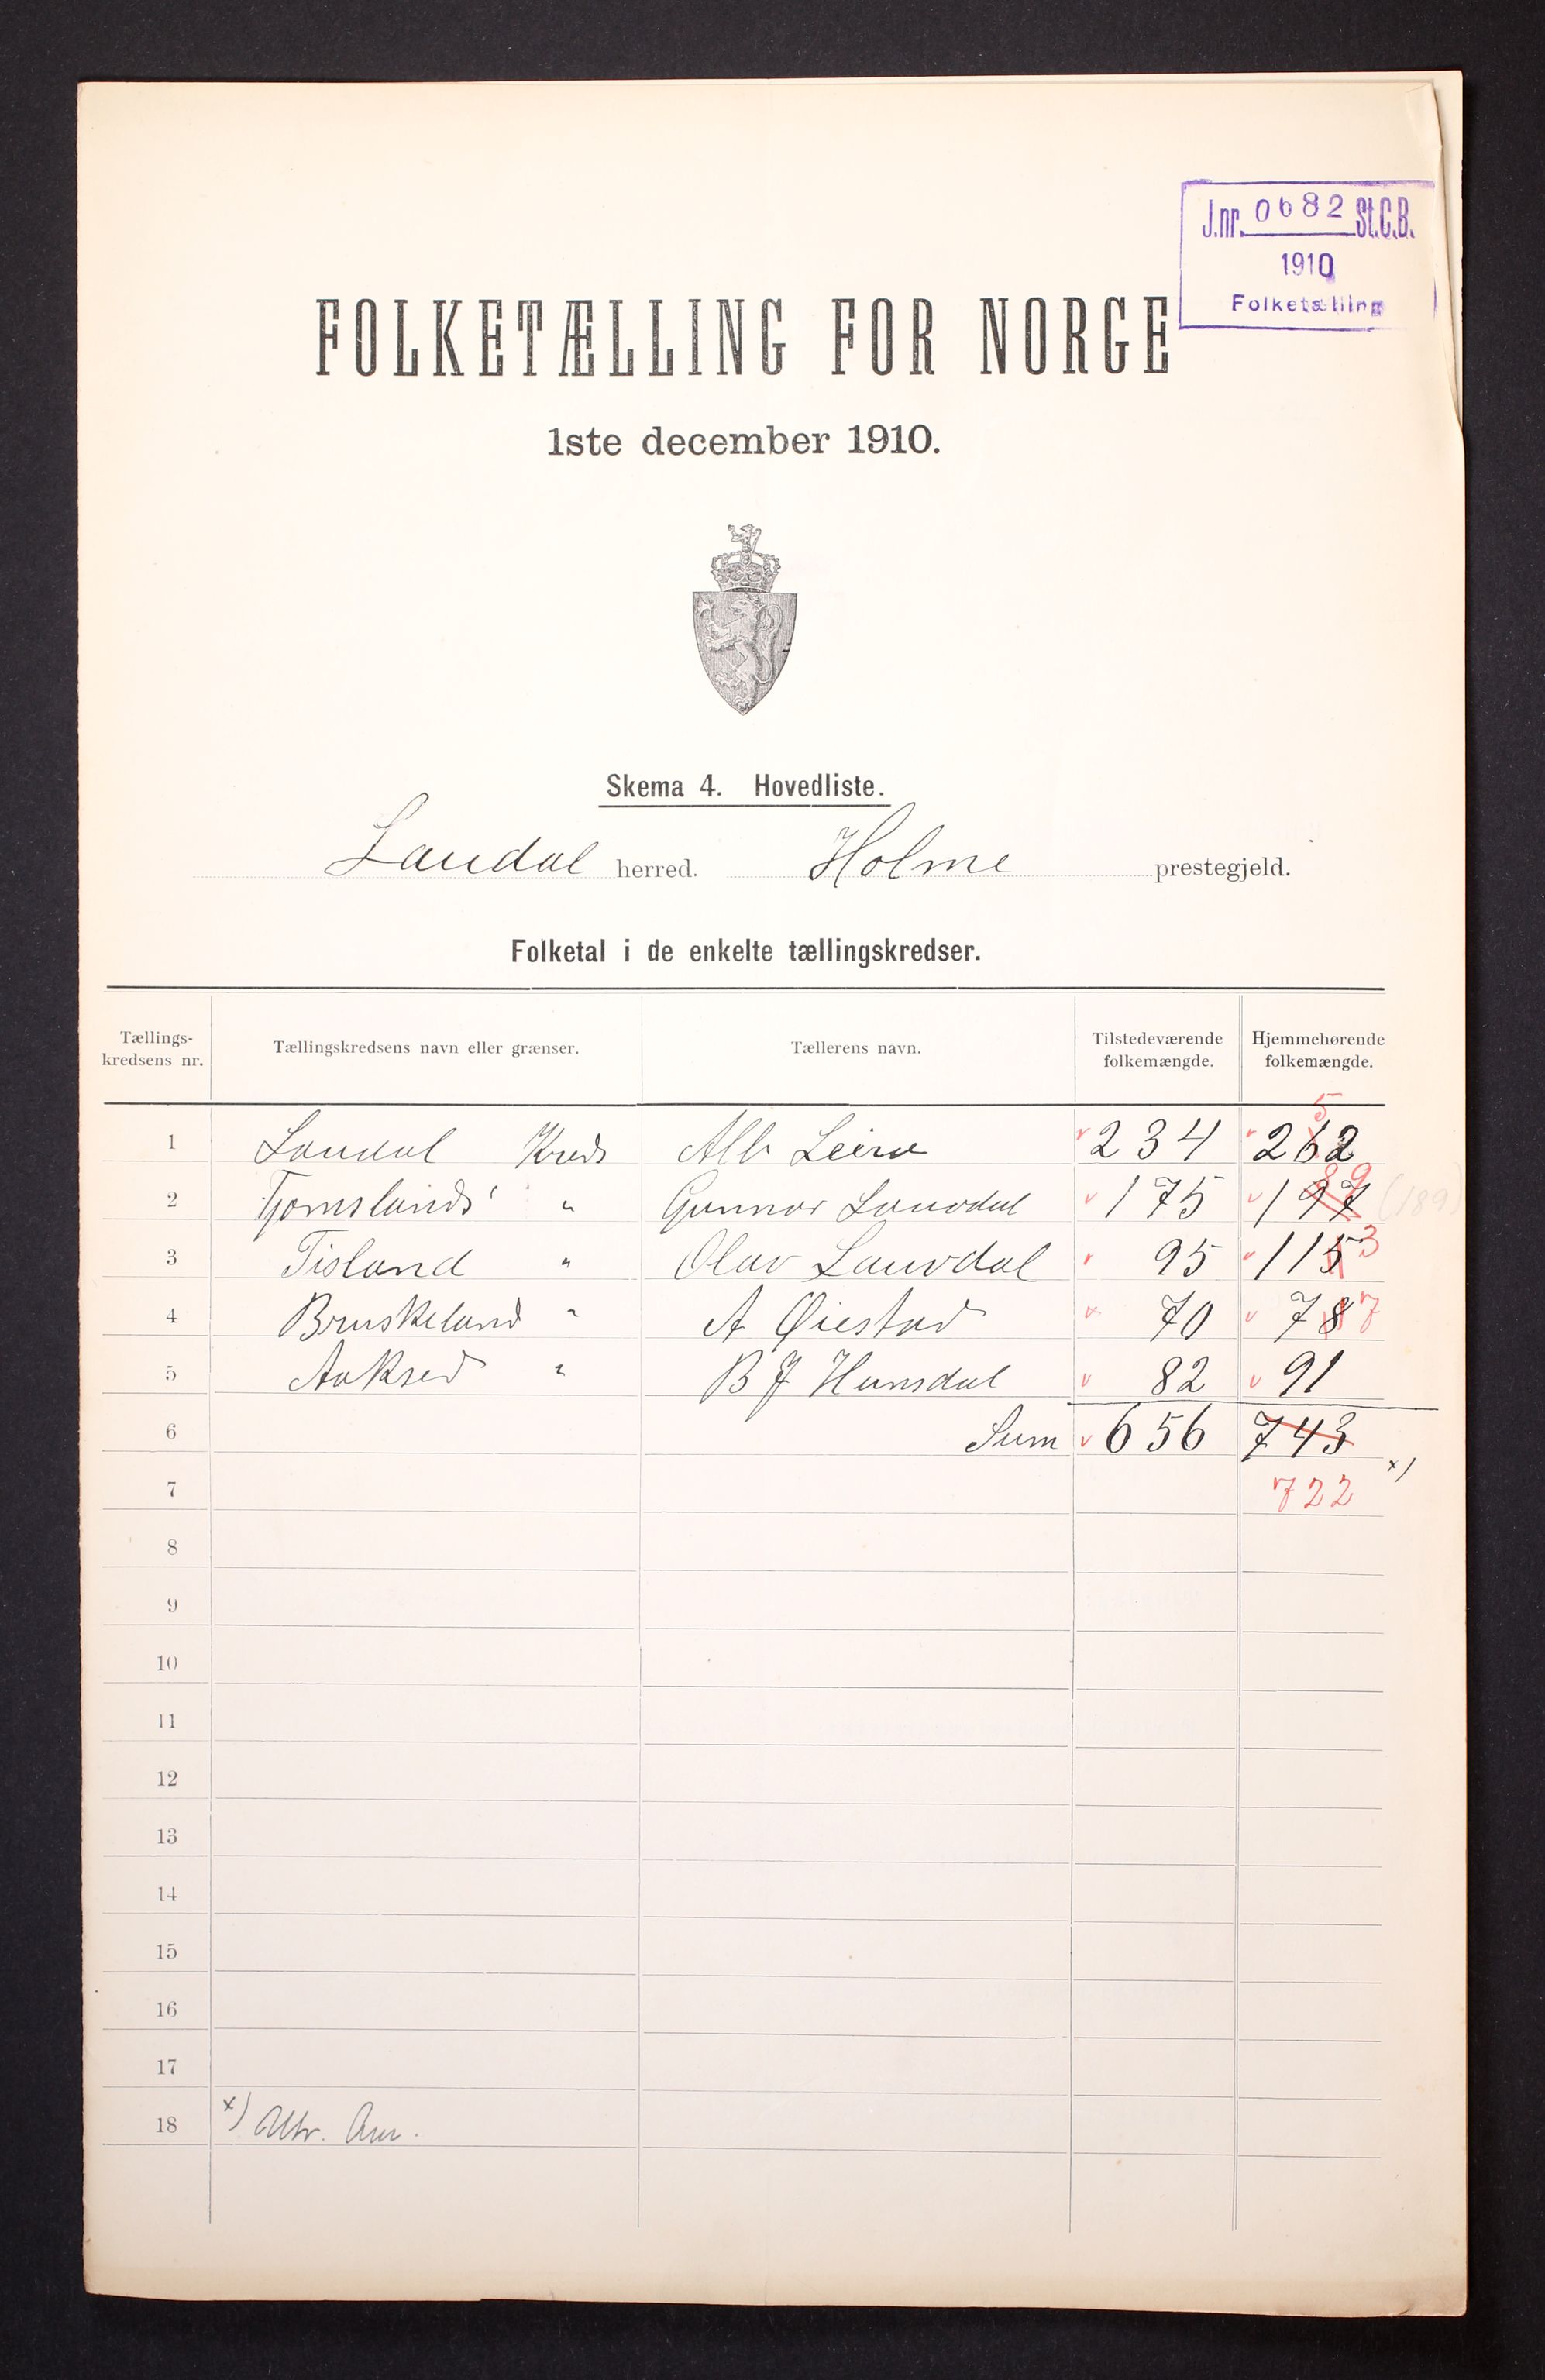 J.nr. 0682 St.C.B.
1910
Folketælling
FOLKETÆLLING FOR NORGE
1ste december 1910.
Skema 4. Hovedliste.
Laudal herred. Holme prestegjeld.
Folketal i de enkelte tællingskredser.
Tællings-
kredsens nr.
Tællingskredsens navn eller grænser.
Tællerens navn.
Tilstedeværende
folkemængde.
Hjemmehørende
folkemængde.
5
1 Laudal Kreds Alb Leira 234 262
89
2 Tjomslands " Gunnar Lauvdal 175 197 (189)
3 Tisland " Olav Lauvdal 95 115 3
4 Bruskeland " A Øiestad 70 78 7
5 Aaksed " B J Hunsdal 82 91
6 Sum 656 743
x)
7 722
8
9
10
11
12
13
14
15
16
17
18 x)